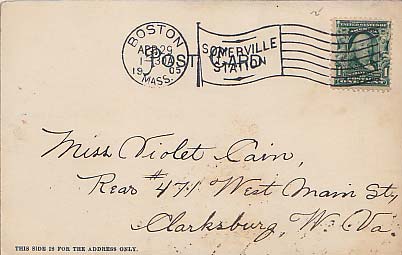 BOSTON
APR 29
1-30
1905
MASS.
SOMERVILLE
STATION
POST CARD
Miss Violet Cain,
Rear #471 West Main St,
Clarksburg, W. Va.
THIS SIDE IS FOR THE ADDRESS ONLY.